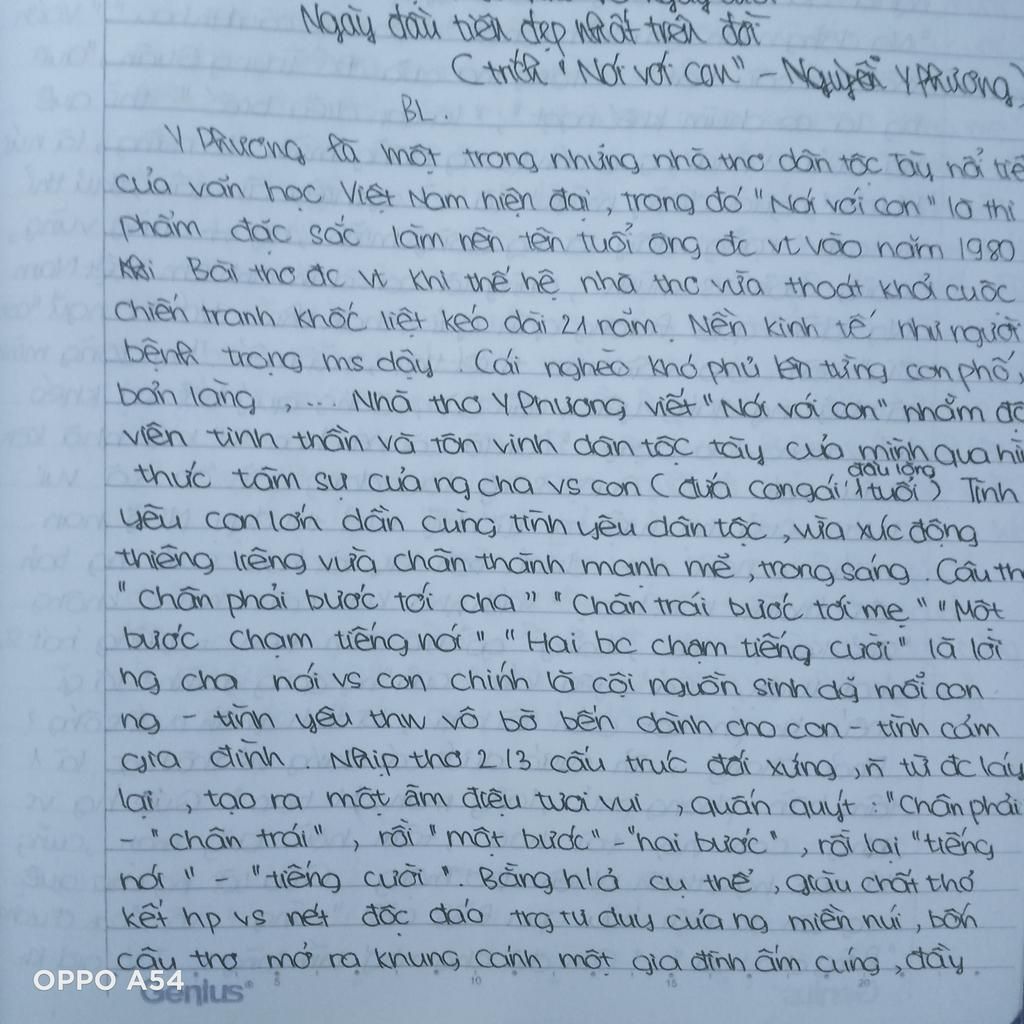 Ngày đầu tiên đẹp nhất trên đời
(trích "Nói với con" - Nguyễn Y Phương)
BL.
Y Phương là một trong những nhà thơ dân tộc Tày nổi tiế
của văn học Việt Nam hiện đại, trong đó "Nói với con" là thi
phẩm đặc sắc làm nên tên tuổi ông đc vt vào năm 1980
Bài thơ đc vt khi thế hệ nhà thơ vừa thoát khỏi cuộc
chiến tranh khốc liệt kéo dài 21 năm. Nền kinh tế như người
bệnh trọng ms dậy. Cái nghèo khó phủ lên từng con phố,
bản làng, ... Nhà thơ Y Phương viết "Nói với con" nhằm độ
viên tinh thần và tôn vinh dân tộc tày của mình qua hì
thức tâm sự của ng cha vs con (đứa con gái đầu lòng 1 tuổi) Tình
yêu con lớn dần cùng tình yêu dân tộc, vừa xúc động
thiêng liêng vừa chân thành mạnh mẽ, trong sáng. Câu th
"Chân phải bước tới cha" "Chân trái bước tới mẹ" "Một
bước chạm tiếng nói" "Hai bc chạm tiếng cười" là lời
ng cha nói vs con chính là cội nguồn sinh dg mỗi con
ng - tình yêu thw vô bờ bến dành cho con - tình cảm
gia đình. Nhịp thơ 2/3 cấu trúc đối xứng, n̄ từ đc láy
lại, tạo ra một âm điệu tươi vui, quấn quýt: "Chân phải
- "chân trái", rồi "một bước" - "hai bước", rồi lại "tiếng
nói" - "tiếng cười". Bằng h/ả cụ thể, giàu chất thơ
kết hp vs nét độc đáo trg tư duy của ng miền núi, bốn
câu thơ mở ra khung cảnh một gia đình ấm cúng, đầy
OPPO A54
Genius
5 10 15 20